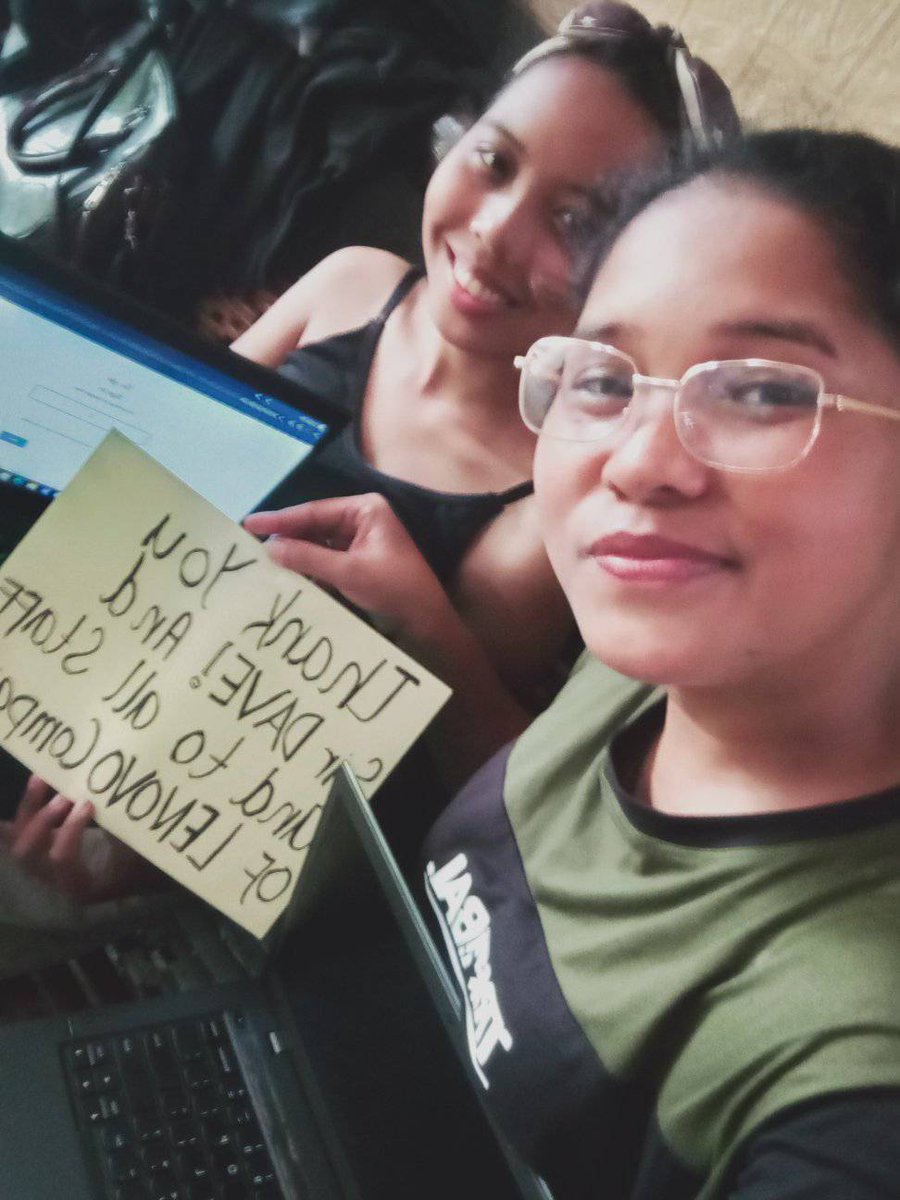 Thank You
sir DAVE! And
and to all Staff
OF LENOVO Compa
TRIBAL